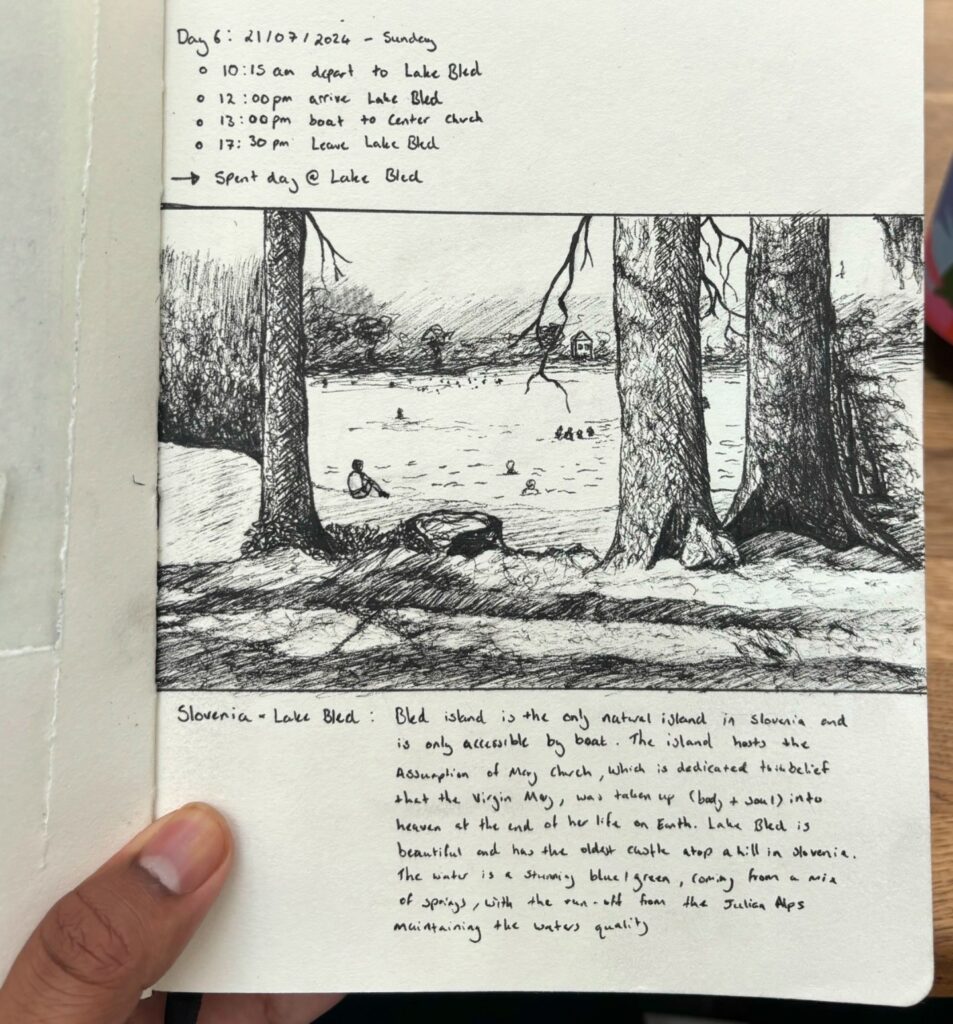 Day 6: 21/07/2024 - Sunday
o 10:15 am depart to Lake Bled
o 12:00pm arrive Lake Bled
o 13:00pm boat to Center Church
o 17:30 pm Leave Lake Bled
→ Spent day @ Lake Bled
Slovenia - Lake Bled : Bled island is the only natural island in Slovenia and
is only accessible by boat. The island hosts the
Assumption of Mary Church, which is dedicated to belief
that the Virgin Mary, was taken up (body + soul) into
heaven at the end of her life on Earth. Lake Bled is
beautiful and has the oldest castle atop a hill in Slovenia.
The water is a stunning blue/green, coming from a mix
of springs, with the run-off from the Julian Alps
maintaining the waters quality